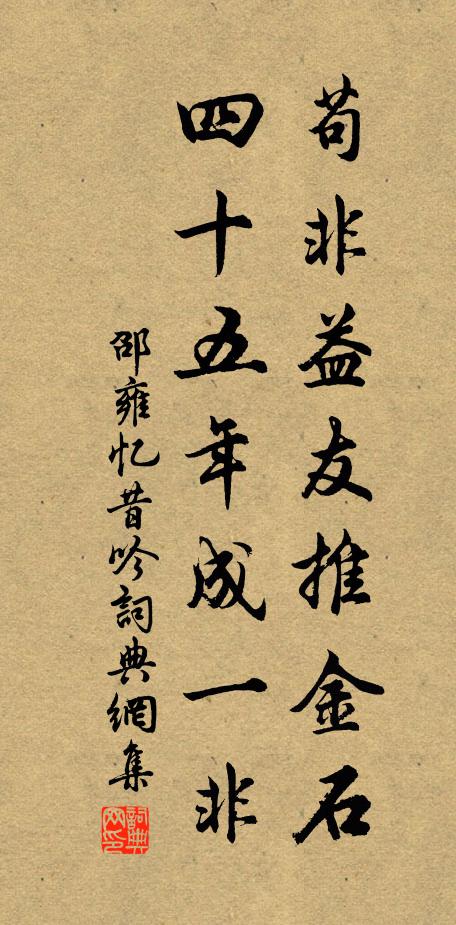 苟非益友推金石
四十五年成一非
邵雍忆昔吟詞典網集
詞典網印